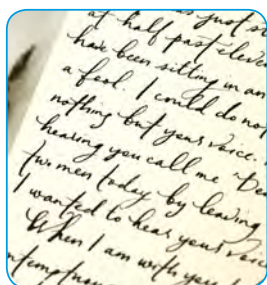 as just st
at half past eleve
have been sitting in an
a fool. I could do not
nothing but your voice.
hearing you call me "Dea
two men today by leaving
I wanted to hear your voic
When I am with you
ntemptuou